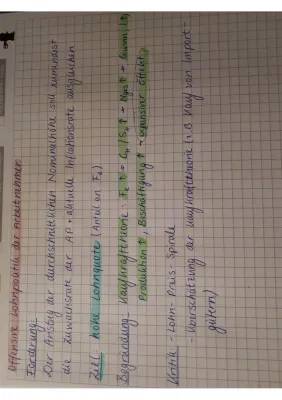 Offensive Lohnpolitik der Arbeitnehmer
Forderung:
Der Anstieg der durchschnittlichen Nominallöhne soll zumindest
die Zuwachsrate der AP + aktuelle Inflationsrate ausgleichen
Ziel: hohe Lohnquote (Anteil an
Begründung Kaufkrafttheorie:
Produktion ↑, Beschäftigung ↑ → expansiver Effekt
Kritik - Lohn-Preis-Spirale
- Überschätzung der Kaufkrafttheorie (z.B Kauf von Import-
gütern)